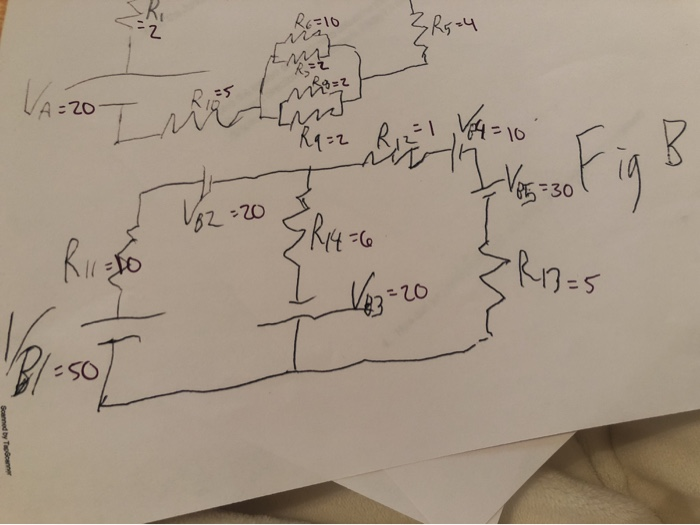 R1
=2
R6=10
R5=4
R7=2
R8=2
VA=20
R10=5
R9=2
R12=1
VB4=10
Fig B
VB5=30
VB2=20
R14=6
R11=10
R13=5
VB3=20
VB1=50
Scanned by TapScanner